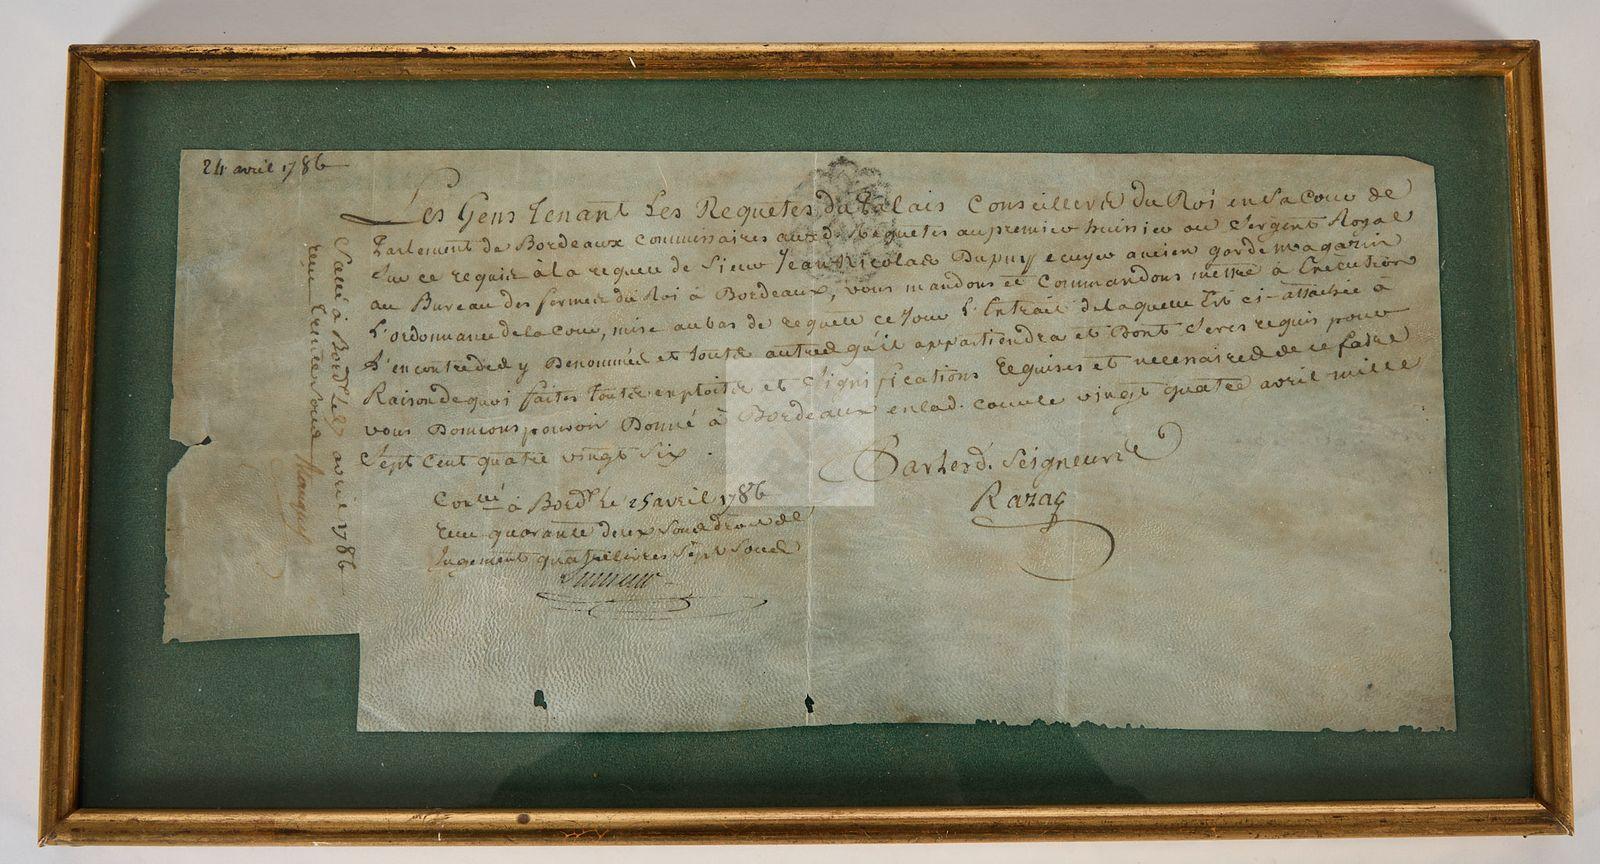 24 avril 1786
Les Gens tenant Les Requetes du Palais Conseillers du Roi en Sa Cour de
Parlement de Bordeaux Commissaires auxd. Requetes au premier huissier ou Sergent Royal
Sur ce requis à la requete de Sieur Jean Nicolas Dupuy ecuyer ancien garde magazin
au Bureau des fermes du Roi à Bordeaux, vous mandons et Commandons mettre à Execution
L'ordonnance de la Cour, mise au bas de requete ce Jour L'Extrait de laquelle Est ci-attachée à
L'encontre des y Denommés et toute autres qu'il appartiendra et Dont Seres requis pour
Raison de quoi faites toute exploits et Significations Requises et necessaires de ce faire
vous Donnons pouvoir Donné à Bordeaux en lad. Cour le vingt quatre avril mille
Sept Cent quatre vingt Six.
Par Lesd. Seigneurs
Razac
à Bord. le 25 avril 1786
Reçu quarante deux Sous
Jugement quatre livres Sept Sous
Scellé à Bordx Le avril 1786
reçu treize Sous